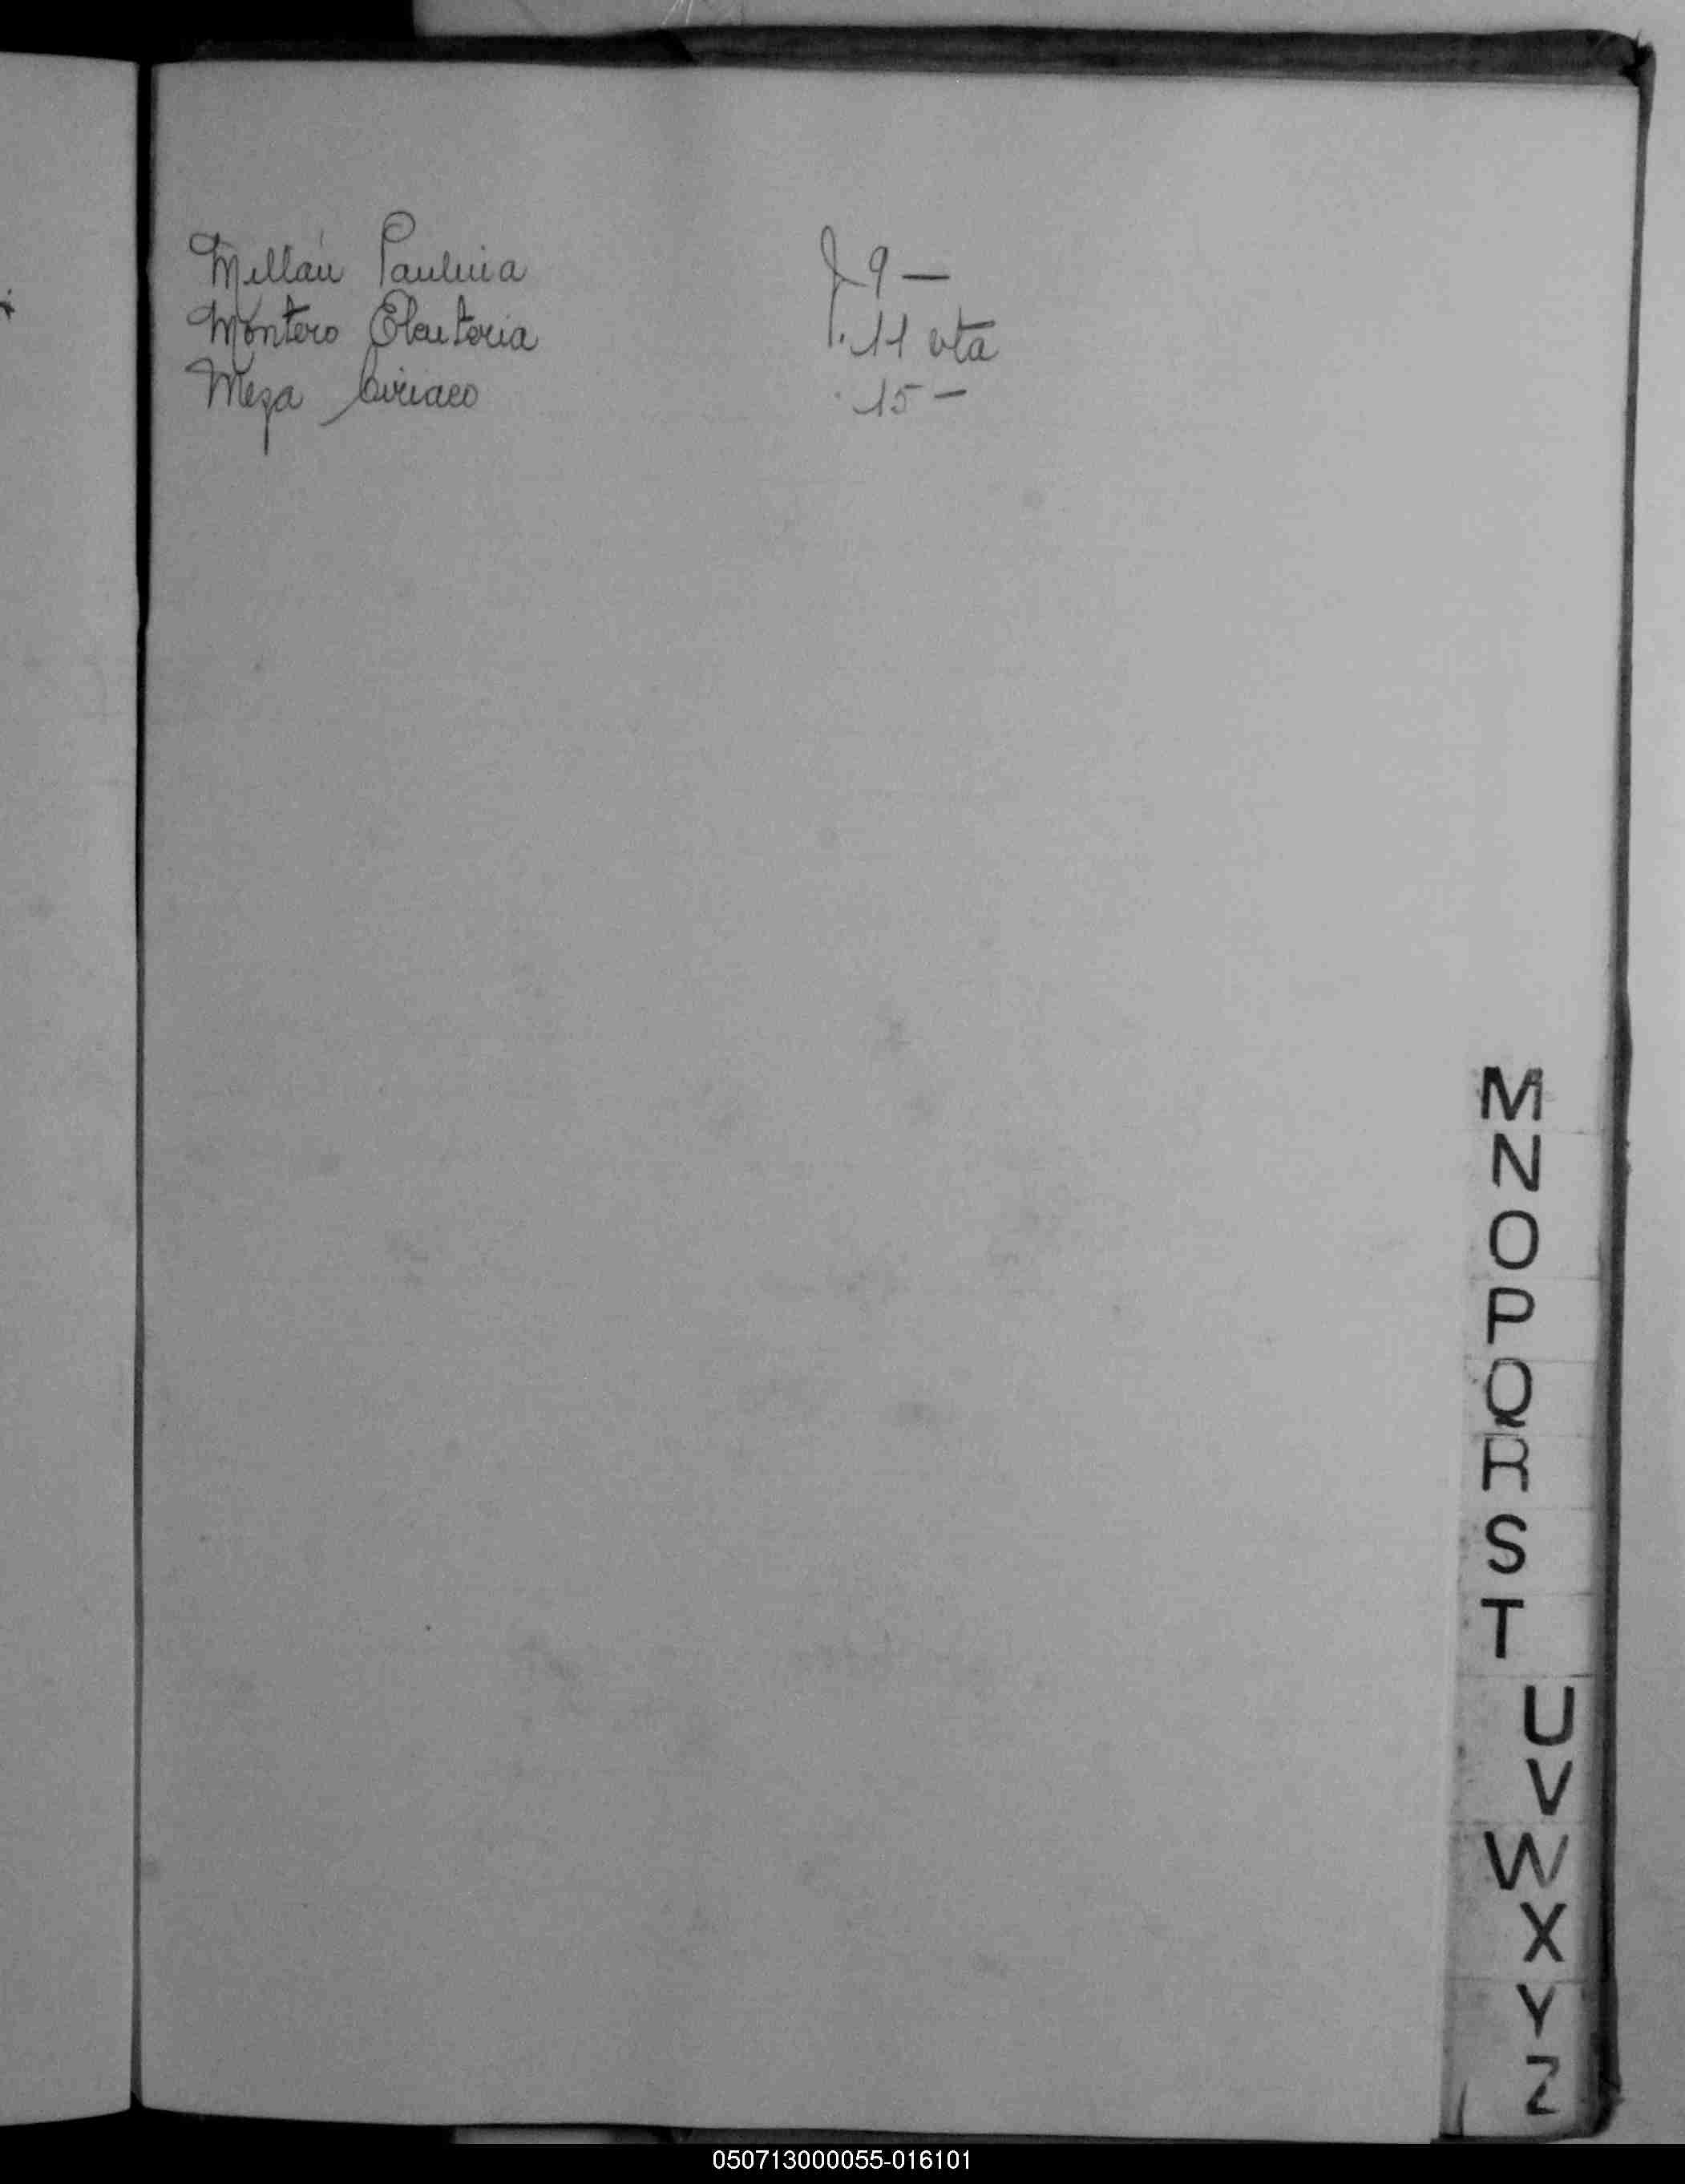 Millán Paulina f. 9 —
Montero Eleuteria f. 11 vta
Meza Ciriaco " 15 —
M
N
O
P
Q
R
S
T
U
V
W
X
Y
Z
050713000055-016101